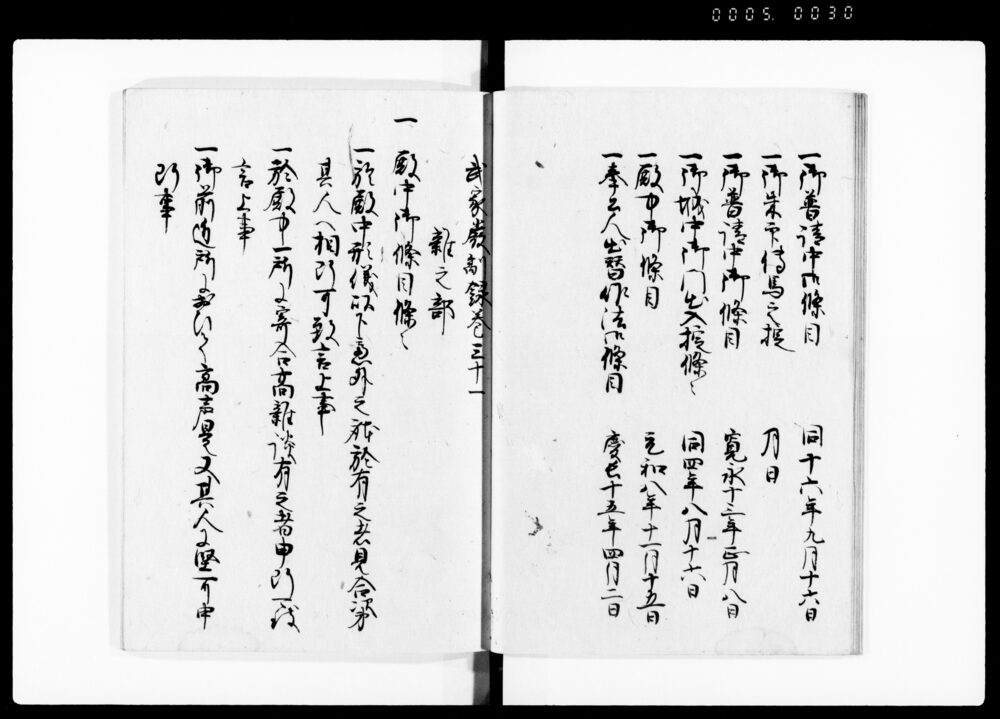 0005. 0030
一御普請中御條目 同十六年九月十六日
一御朱印傳馬之掟 月日
一御普請中御條目 寛永十三年正月八日
一御城中御門出入掟條々 同四年八月十六日
一殿中御條目 元和八年十一月十五日
一奉公人出替作法御條目 慶長十五年四月二日
武家嚴制録巻三十一
雜之部
一 殿中御條目條々
一於殿中形儀以下慮外之族於有之者見合次第
其人へ相断可致言上事
一於殿中一所ニ寄合高雜談有之者申断可致
言上事
一御前近所ニおいて高声是又其人ニ堅可申
断事